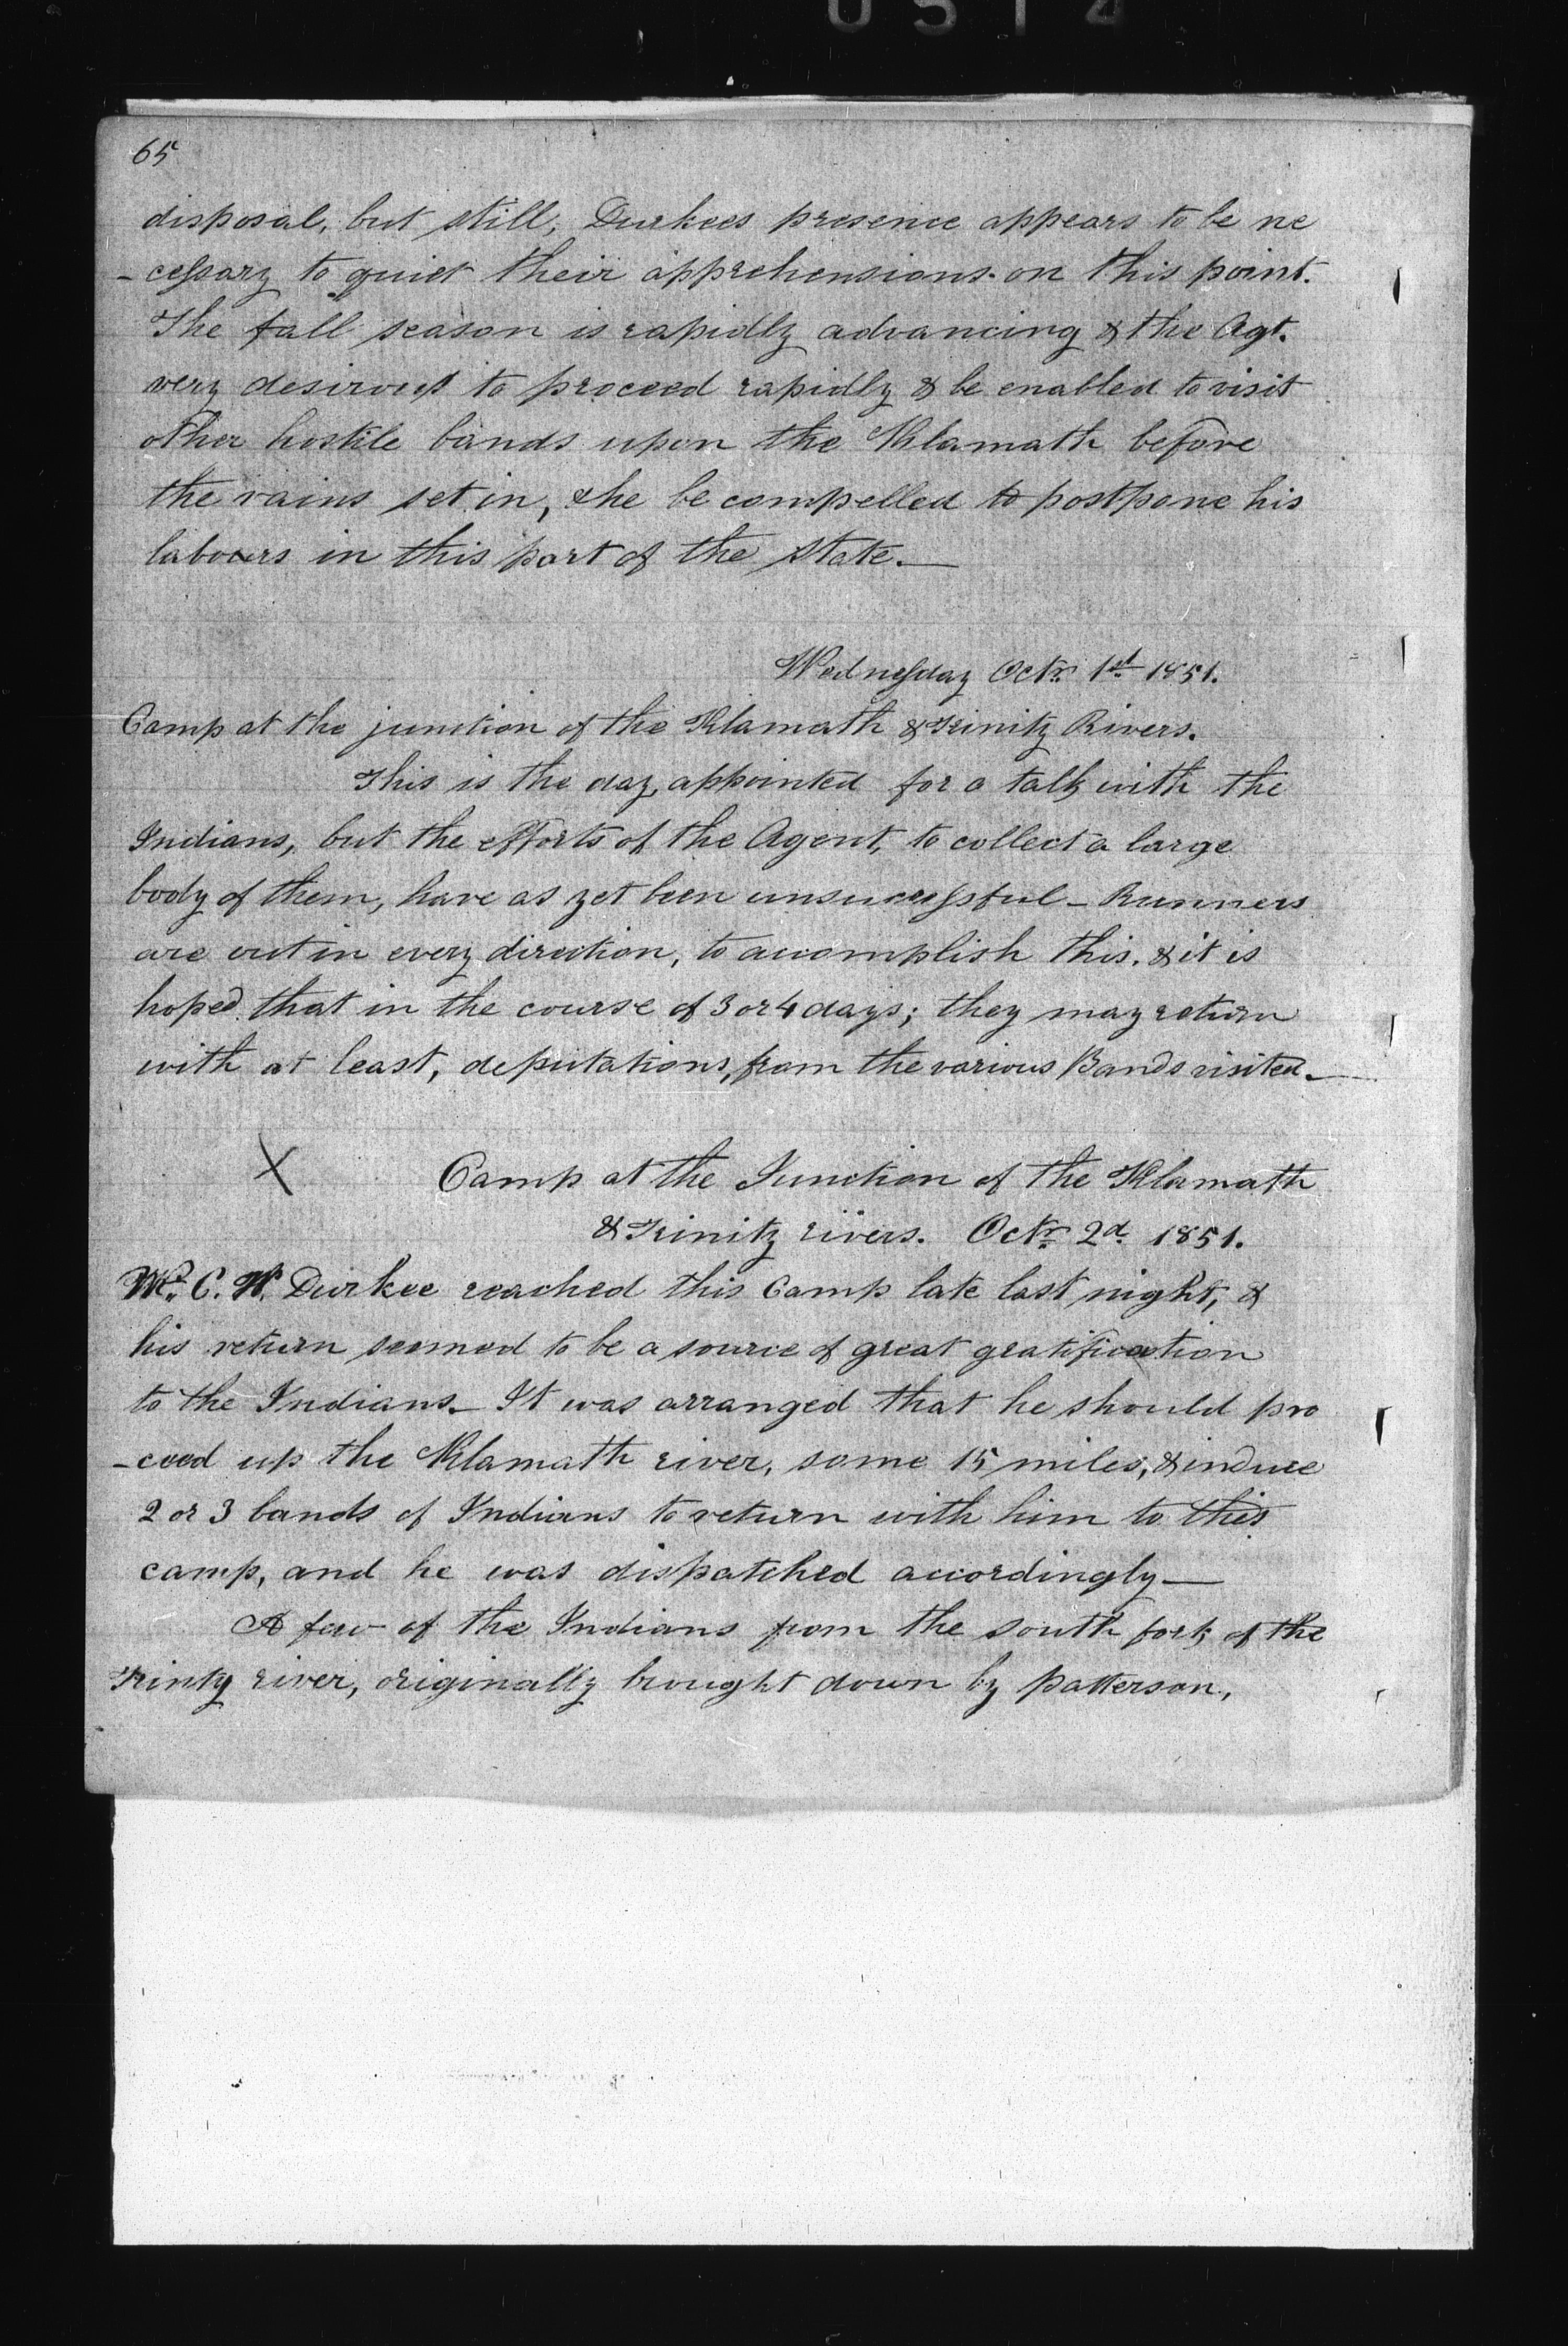 65
disposal, but still, Durkees presence appears to be ne
-cessary to quiet their apprehensions on this point.
The fall season is rapidly advancing & the Agt.
very desirous to proceed rapidly & be enabled to visit
other hostile bands upon the Klamath before
the rains set in, & he be compelled to postpone his
labours in this part of the State.
Wednesday Octr. 1st 1851.
Camp at the junction of the Klamath & Trinity Rivers.
This is the day, appointed for a talk with the
Indians, but the efforts of the Agent, to collect a large
body of them, have as yet been unsuccessful - Runners
are out in every direction, to accomplish this, & it is
hoped that in the course of 3 or 4 days; they may return
with at least, deputations, from the various Bands visited.
X Camp at the Junction of the Klamath
& Trinity rivers. Octr. 2d. 1851.
Mr. C. W. Durkee reached this Camp late last night, &
his return seemed to be a source of great gratification
to the Indians. It was arranged that he should pro
-ceed up the Klamath river, some 15 miles, & induce
2 or 3 bands of Indians to return with him to this
camp, and he was dispatched accordingly—
A few of the Indians from the south fork of the
Trinty river, originally brought down by patterson,